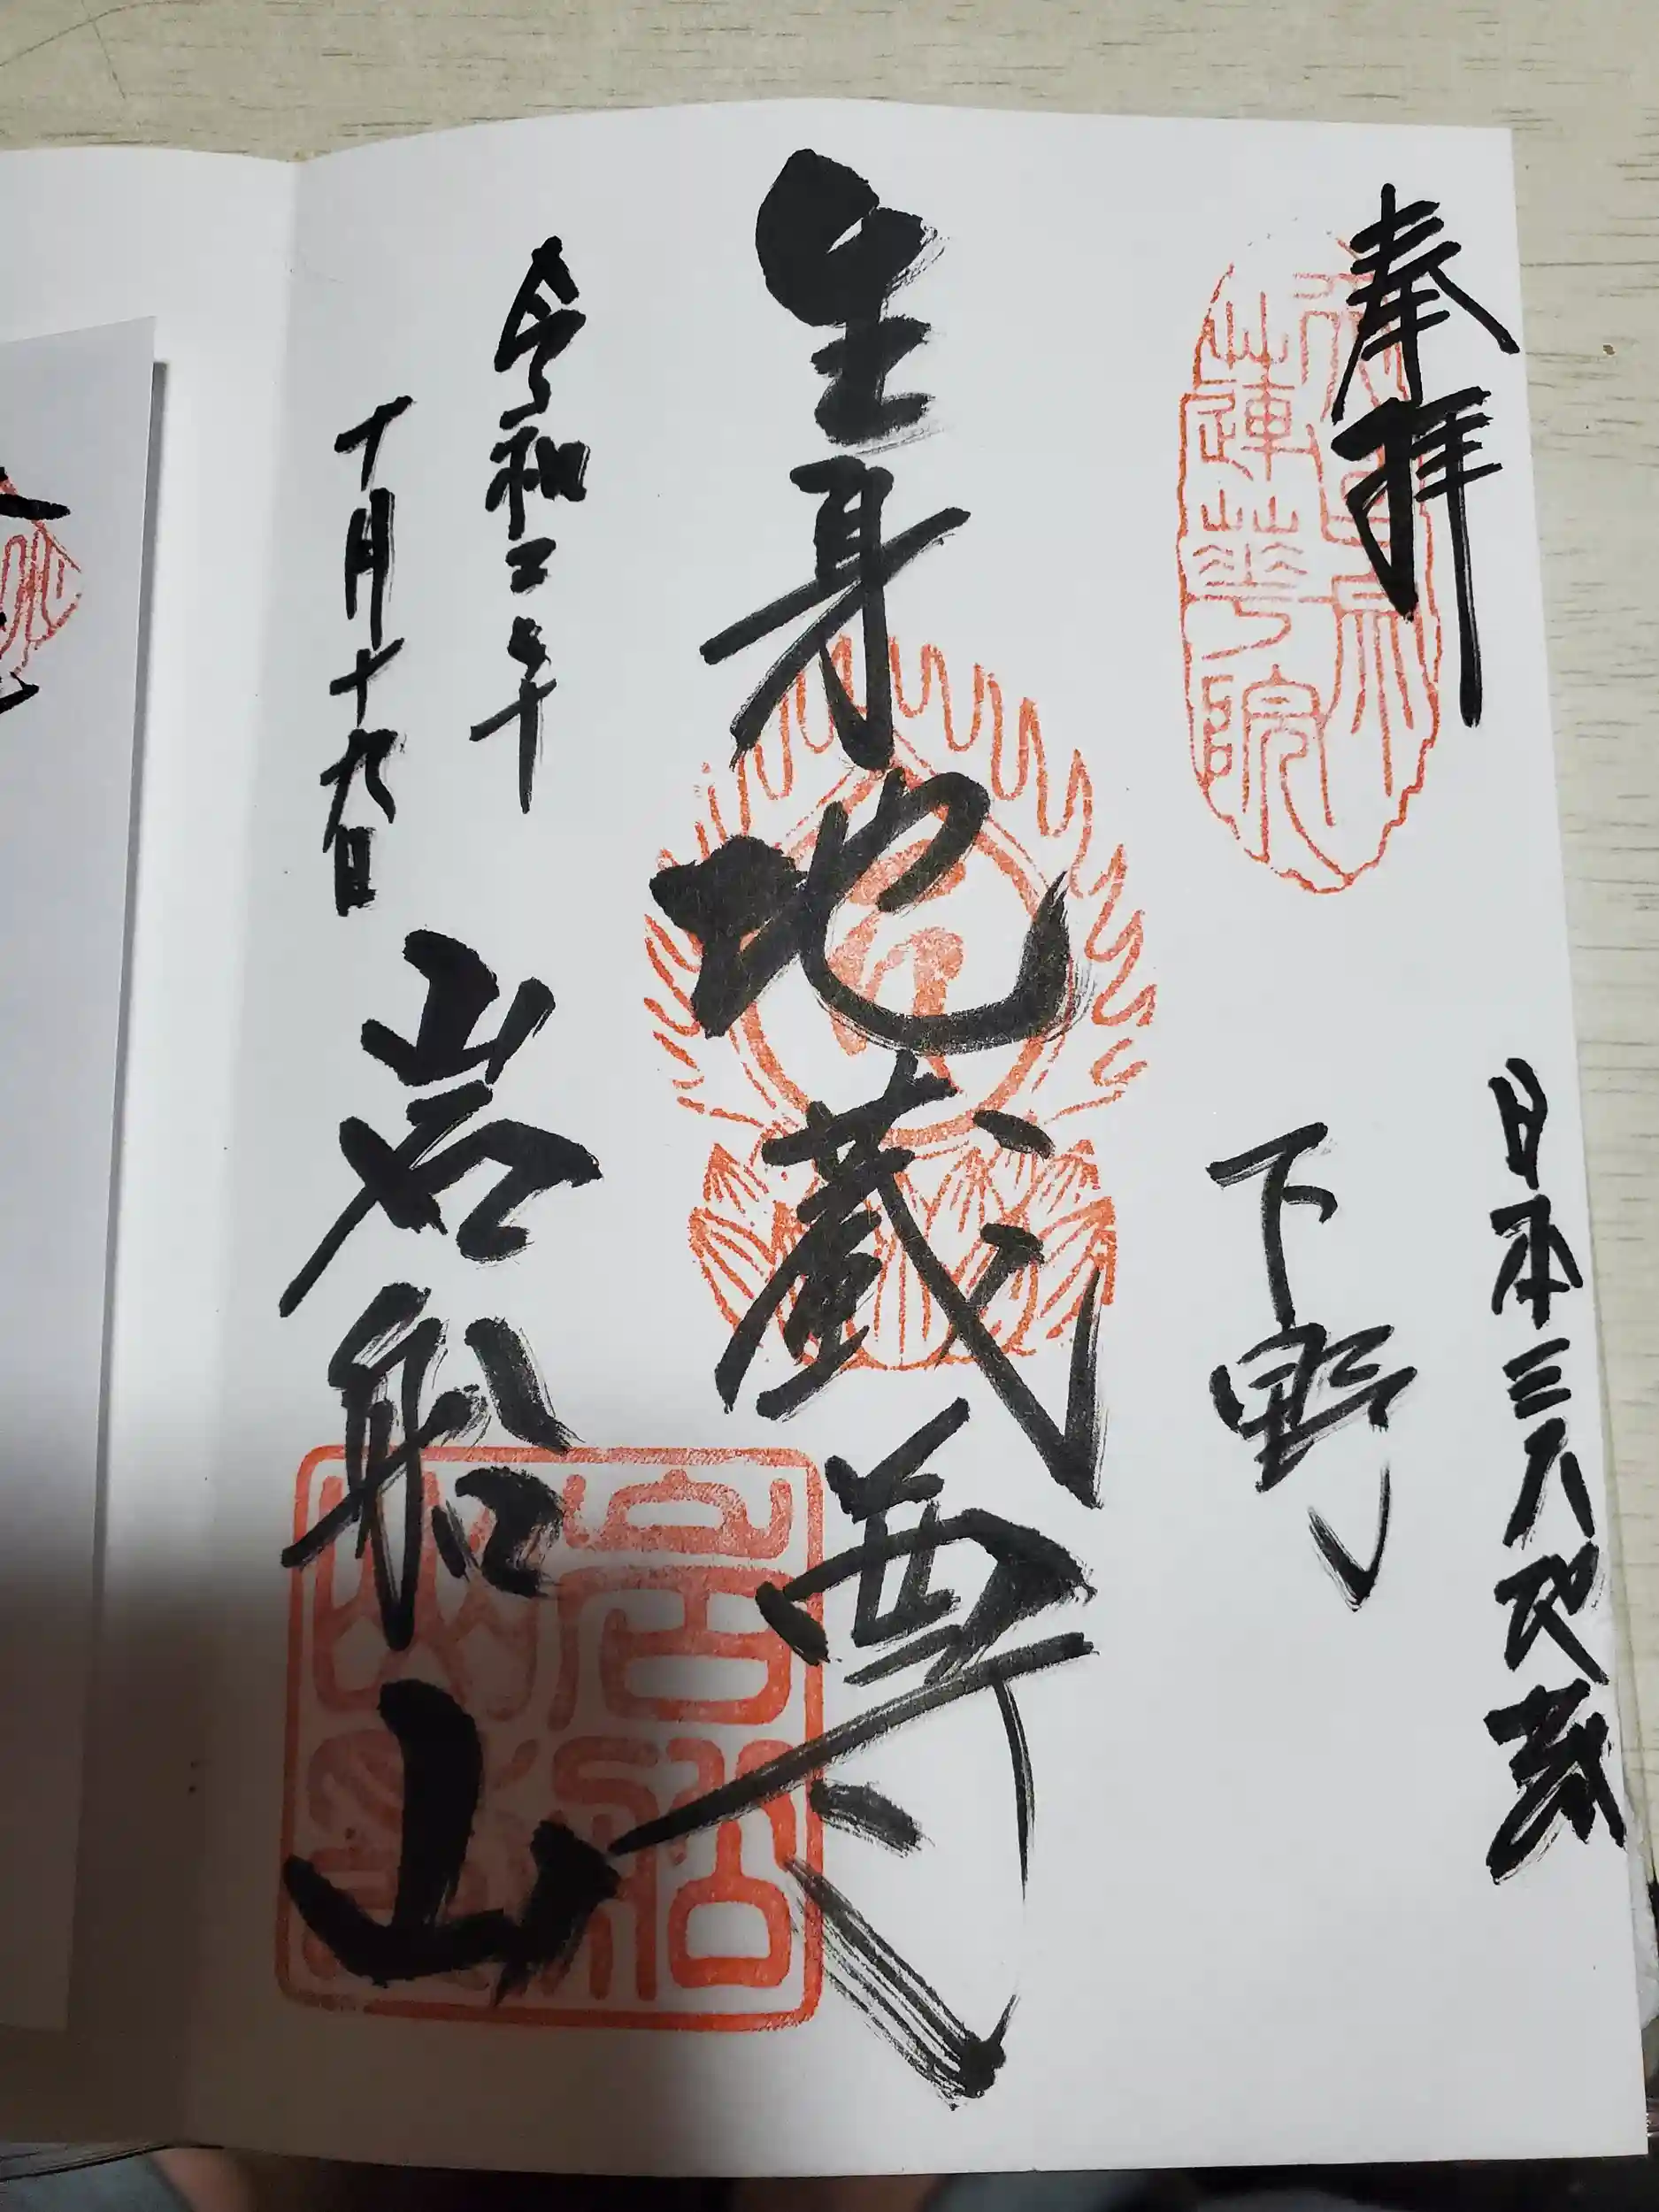 奉拝
日本三大地蔵
下野
生身地蔵尊
令和二年
十月十九日
岩船山
蓮華院